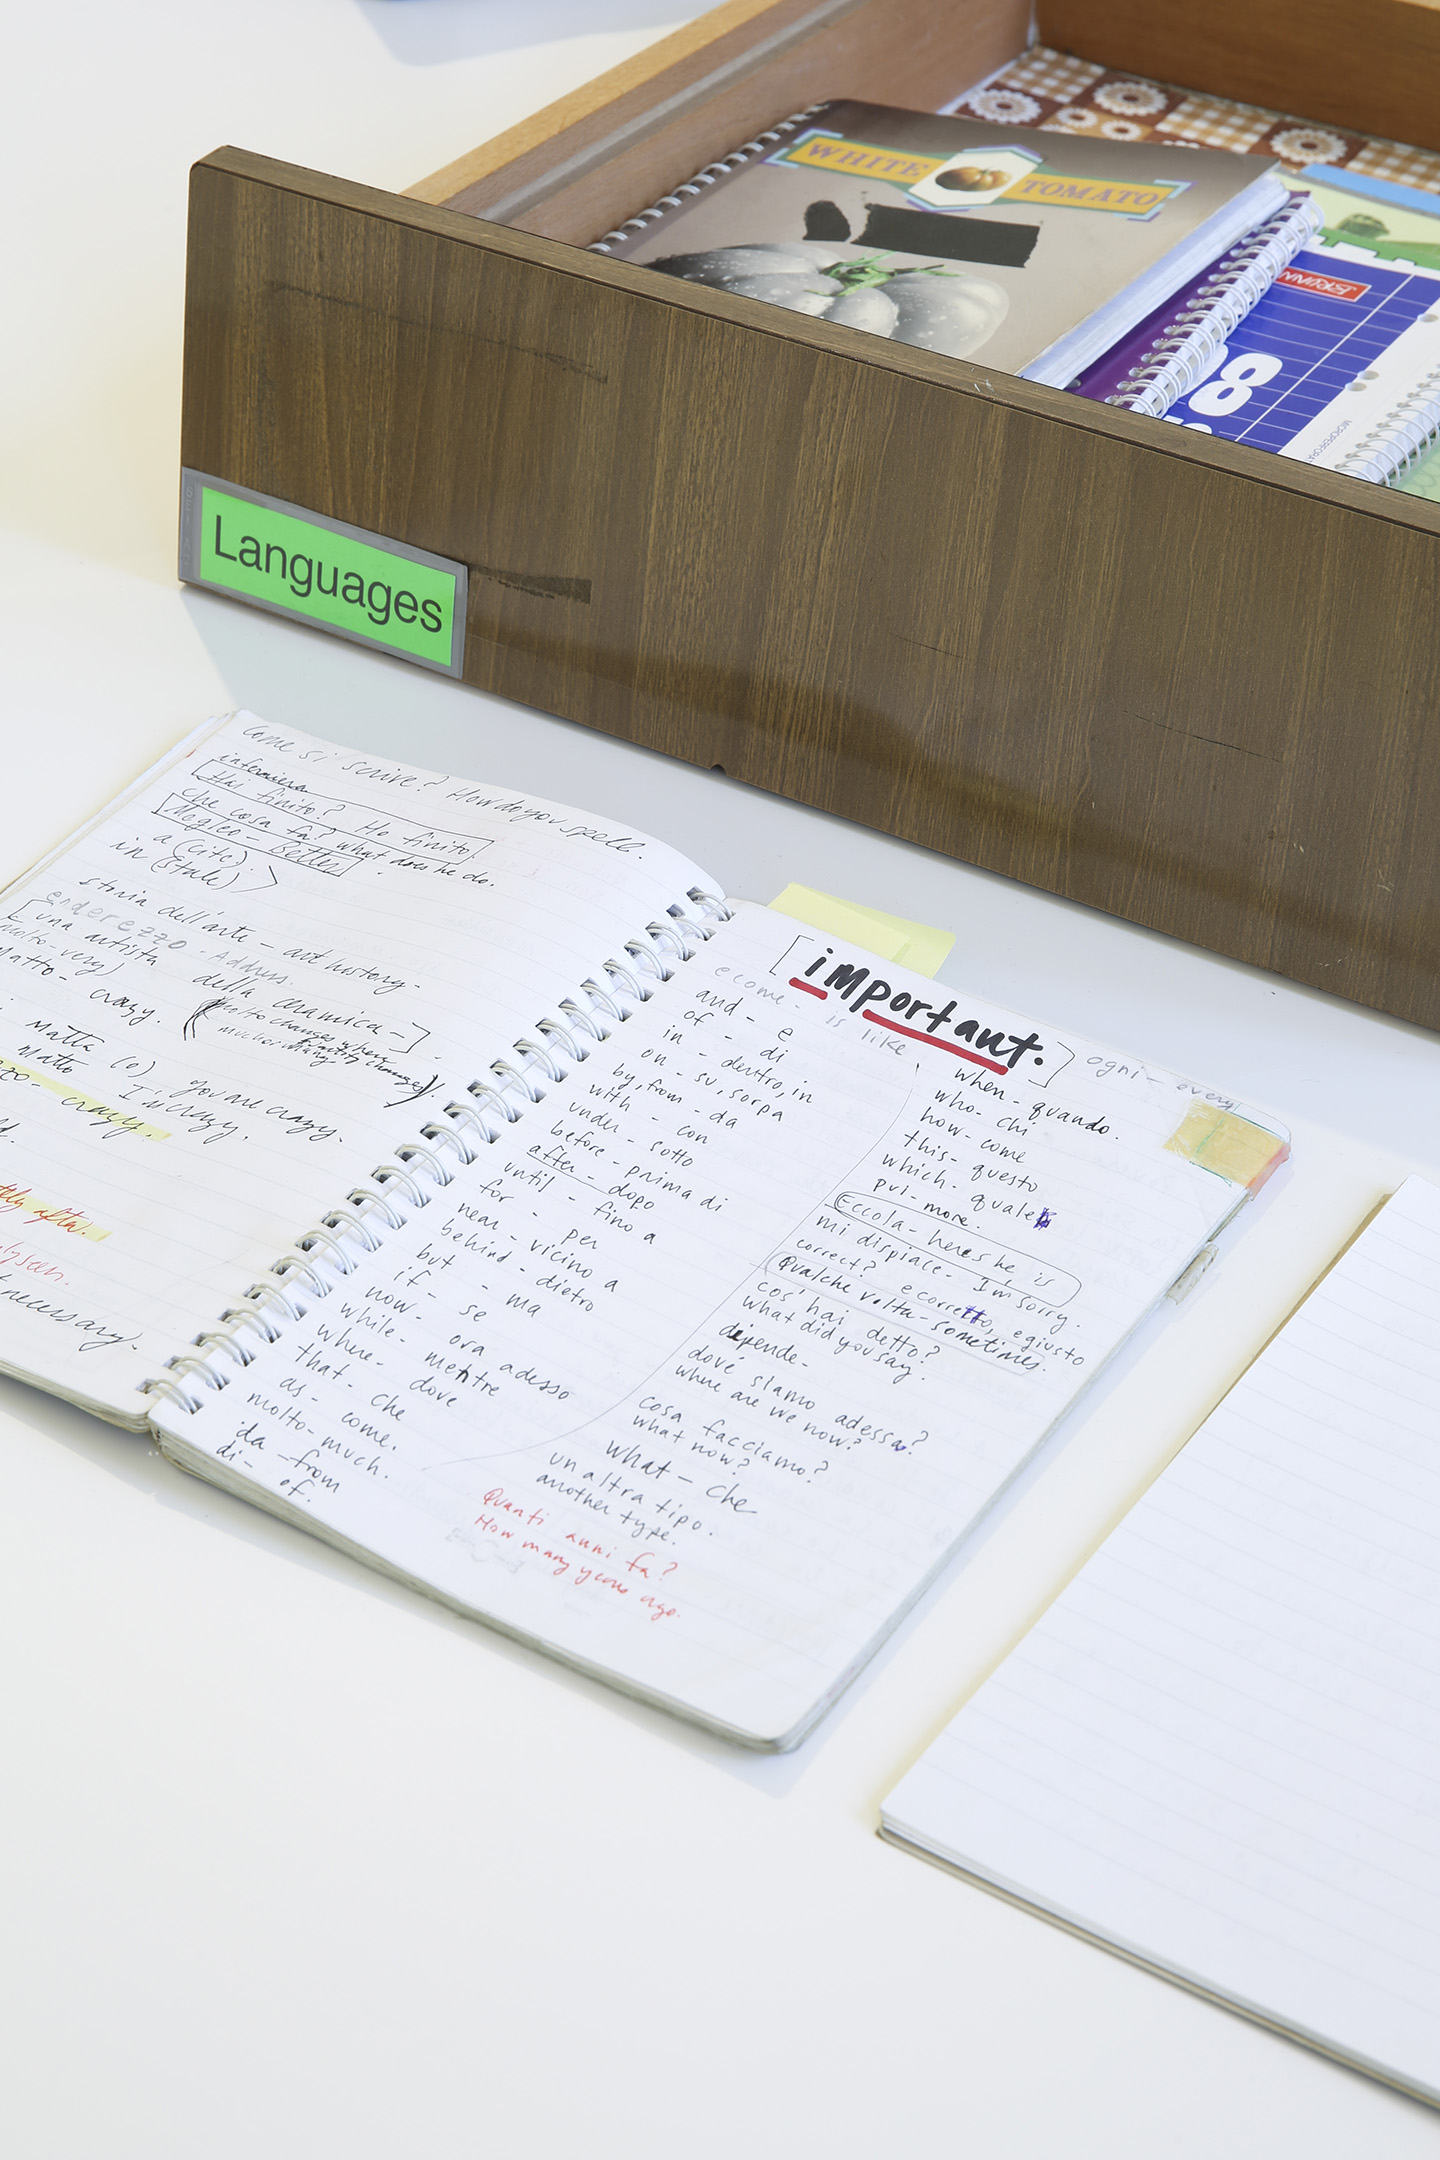 WHITE TOMATO
Languages
Come si scrive? How do you spell.
infermiera
Hai finito? Ho finito
Che cosa fa? what does he do.
Meglio - Better
a (cite)
in (state)
storia dell'arte - art history.
enderezzo - Address.
una artista della ceramica -
molto - very)
Matto - crazy.
Matta (o) you are crazy.
Matto I'm crazy.
crazy.
necessary.
[important.]
e come - is like
ogni - every
and - e
of - di
in - dentro, in
on - su, sorpa
by, from - da
with - con
under - sotto
before - prima di
after - dopo
until - fino a
for - per
near - vicino a
behind - dietro
but - ma
if - se
now - ora adesso
while - mentre
where - dove
that - che
as - come.
molto - much.
da - from
di - of.
when - quando.
who - chi
how - come
this - questo
which - quale
pui - more.
Eccola - heres he, is
mi dispiace - I'm sorry.
correct? e corretto, e giusto
Qualche volta - sometimes.
cos' hai detto?
what did you say.
dipende -
dové siamo adessa?
where are we now?
cosa facciamo?
what now?
What - che
un altra tipo.
another type.
Quanti anni fa?
How many years ago.